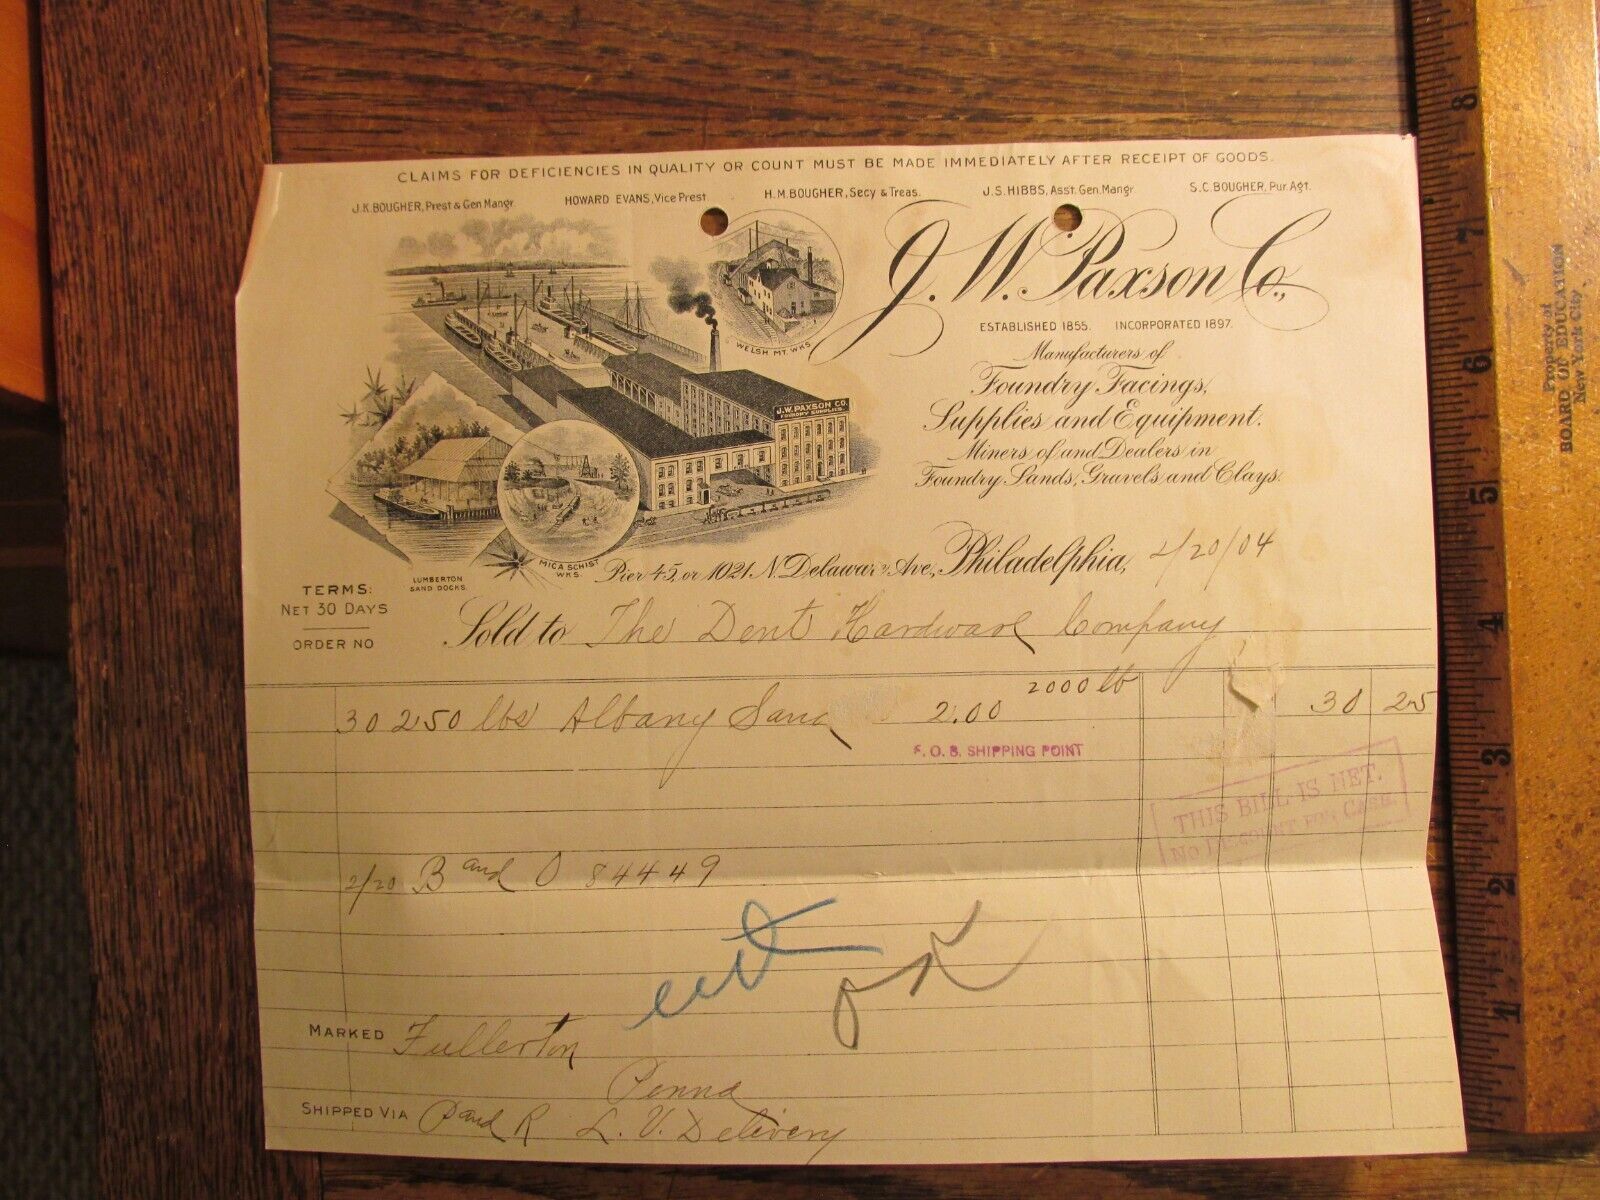 CLAIMS FOR DEFICIENCIES IN QUALITY OR COUNT MUST BE MADE IMMEDIATELY AFTER RECEIPT OF GOODS.
J.K. BOUGHER, Prest & Gen Mangr. HOWARD EVANS, Vice Prest H.M. BOUGHER, Secy & Treas. J.S. HIBBS, Asst. Gen. Mangr S.C. BOUGHER, Pur. Agt.
J. W. Paxson Co.,
ESTABLISHED 1855. INCORPORATED 1897.
Manufacturers of
Foundry Facings,
Supplies and Equipment.
Miners of and Dealers in
Foundry Sands, Gravels and Clays.
WELSH MT. WKS.
J.W. PAXSON CO.
FOUNDRY SUPPLIES.
MICA SCHIST
WKS.
LUMBERTON
SAND DOCKS.
Pier 45, or 1021 N. Delaware Ave., Philadelphia, 2/20/04
TERMS:
NET 30 DAYS
ORDER NO
Sold to The Dent Hardware Company
30250 lbs Albany Sand 2.00 2000 lb 30 25
F. O. B. SHIPPING POINT
THIS BILL IS NET.
NO DISCOUNT FOR CASH.
2/20 B and O 84449
OK
MARKED Fullerton
Penna
SHIPPED VIA P and R L. V. Delivery
8
7
6
5
4
3
2
1
Property of
BOARD OF EDUCATION
New York City